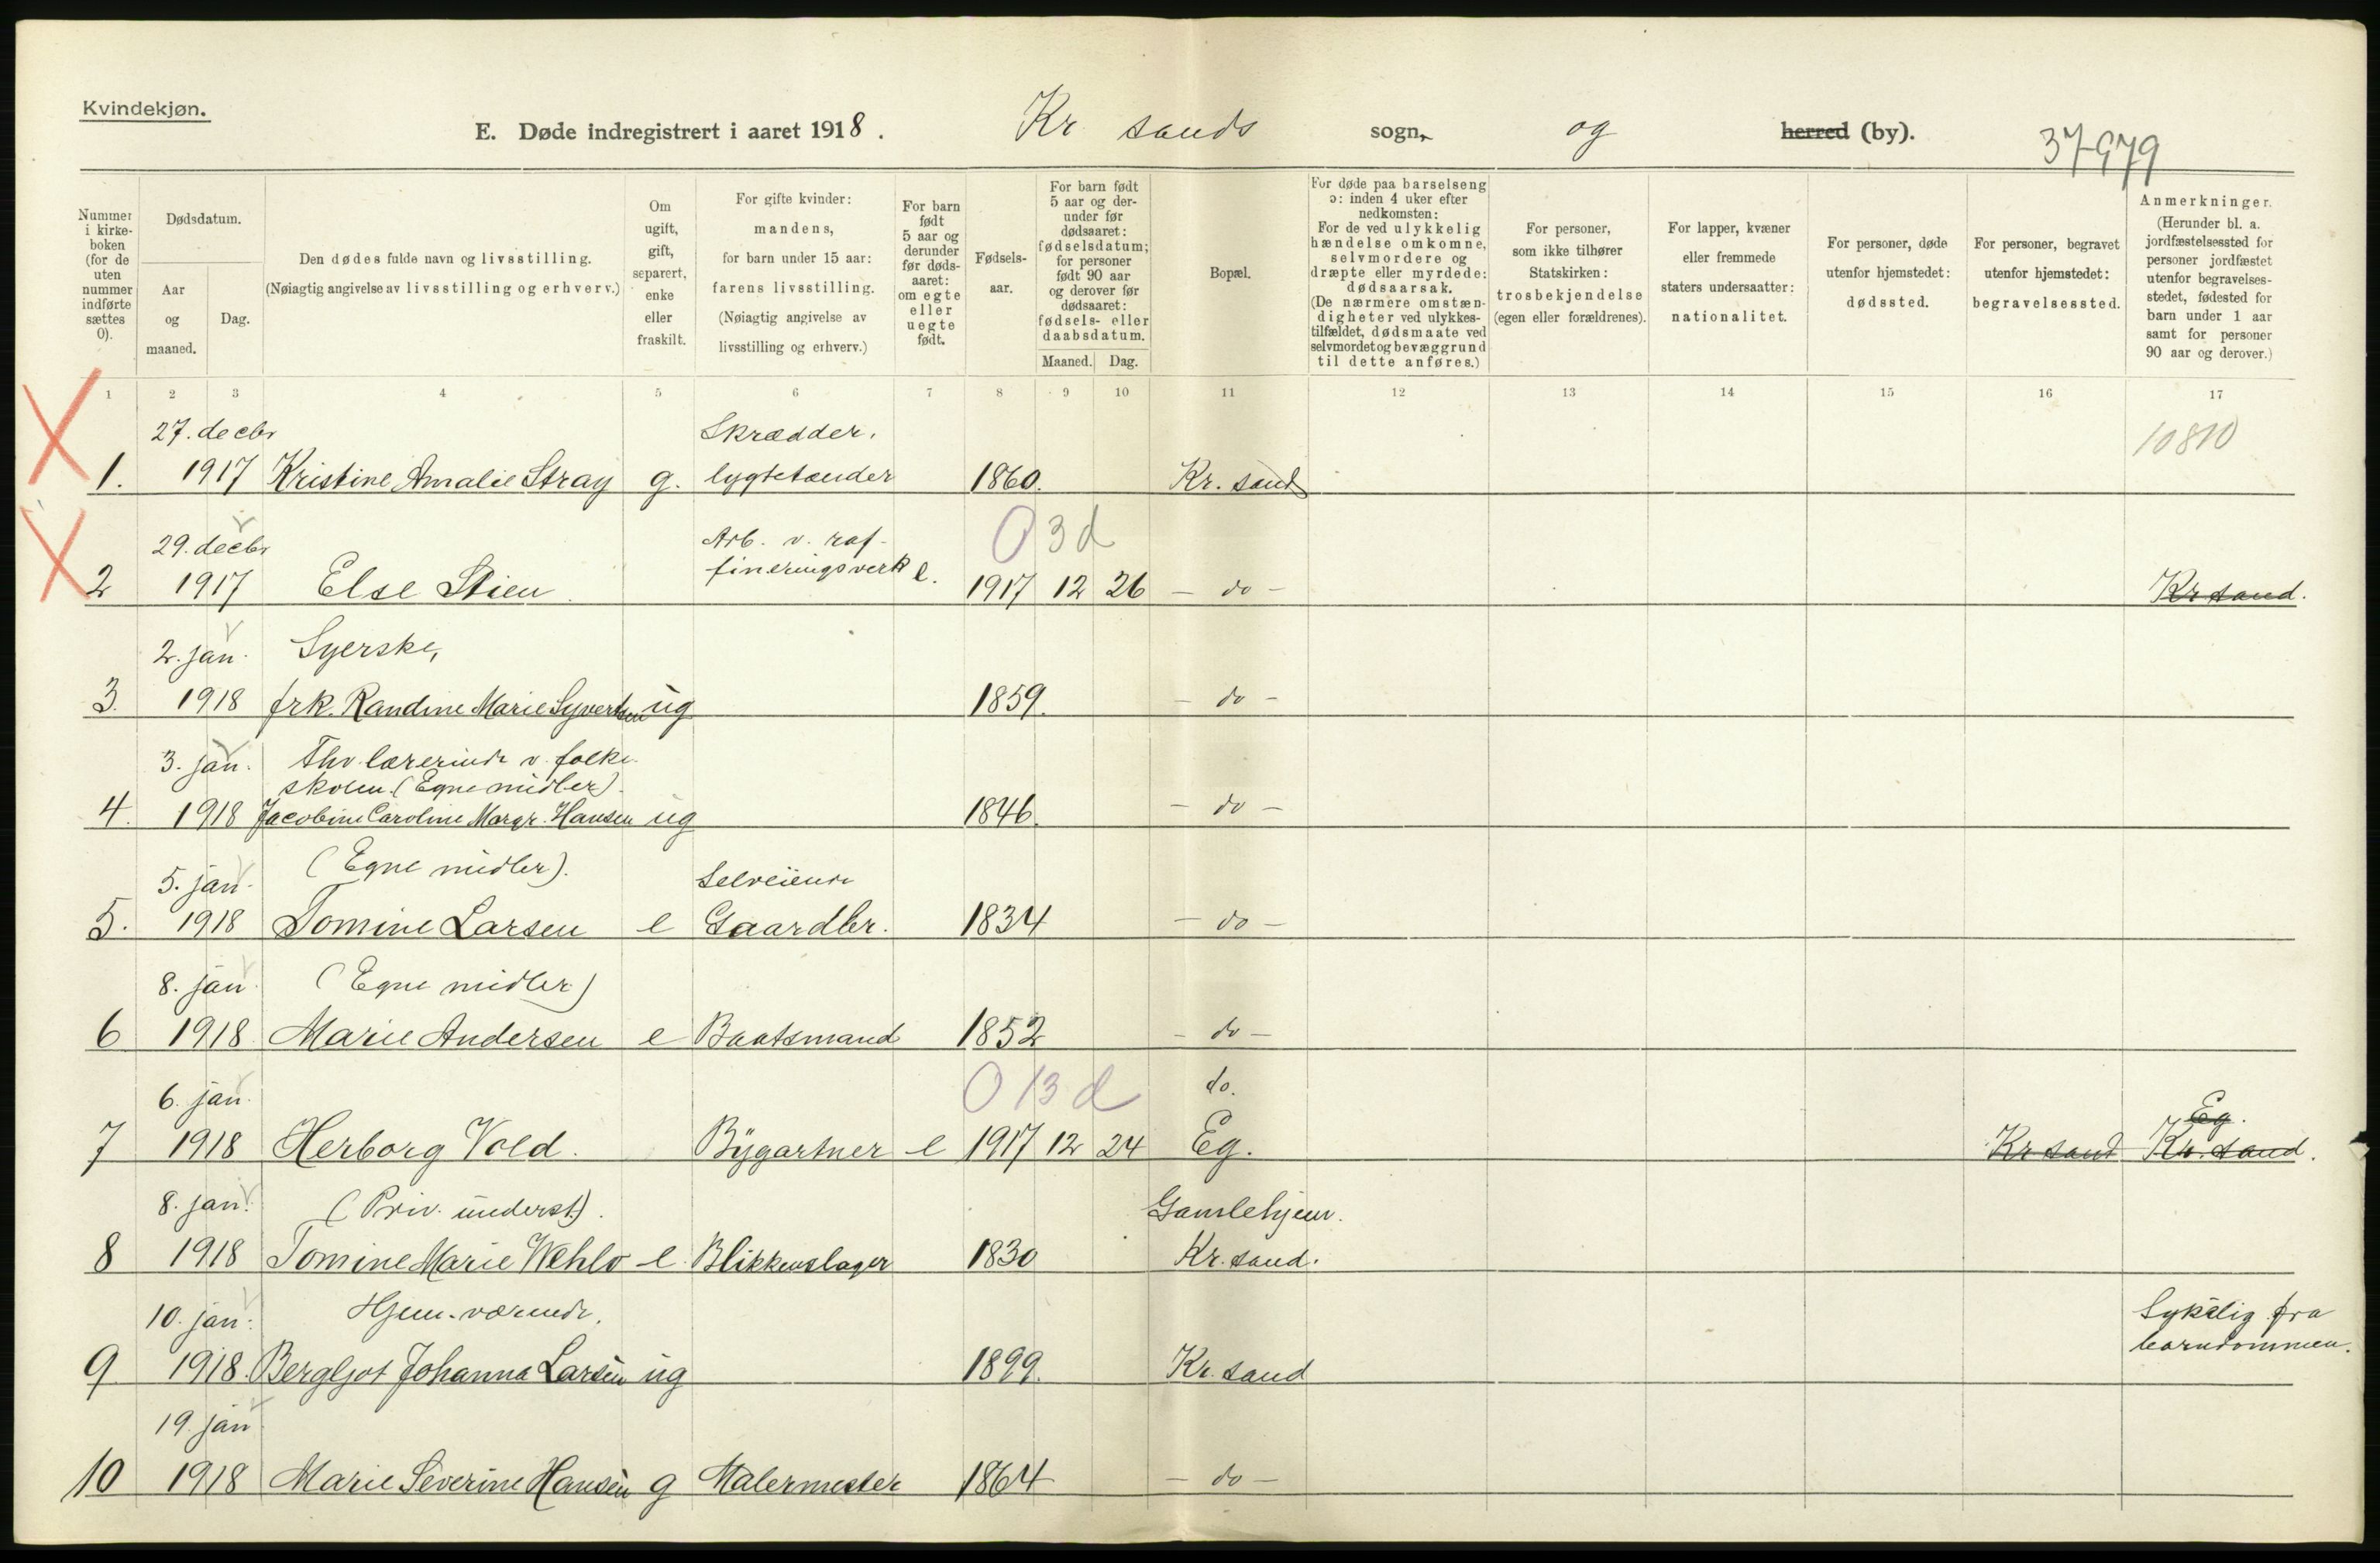 Kvindekjøn.
E. Døde indregistrert i aaret 1918.
Kr sands sogn, og herred (by).
37979
Nummer i kirke-boken (for de uten nummer indførte sættes 0).
Dødsdatum.
Aar og maaned.
Dag.
Den dødes fulde navn og livsstilling.
(Nøiagtig angivelse av livsstilling og erhverv.)
Om ugift, gift, separert, enke eller fraskilt.
For gifte kvinder: mandens, for barn under 15 aar: farens livsstilling. (Nøiagtig angivelse av livsstilling og erhverv.)
For barn født 5 aar og derunder før døds-aaret: om egte eller uegte født.
Fødsels-aar.
For barn født 5 aar og der-under før dødsaaret: fødselsdatum; for personer født 90 aar og derover før dødsaaret: fødsels- eller daabsdatum.
Maaned. Dag.
Bopæl.
For døde paa barselseng ɔ: inden 4 uker efter nedkomsten: For de ved ulykkelig hændelse omkomne, selvmordere og dræpte eller myrdede: dødsaarsak. (De nærmere omstæn-digheter ved ulykkes-tilfældet, dødsmaate ved selvmordet og bevæggrund til dette anføres.)
For personer, som ikke tilhører Statskirken: trosbekjendelse (egen eller forældrenes).
For lapper, kvæner eller fremmede staters undersaatter: nationalitet.
For personer, døde utenfor hjemstedet: dødssted.
For personer, begravet utenfor hjemstedet: begravelsessted.
Anmerkninger. (Herunder bl. a. jordfæstelsessted for personer jordfæstet utenfor begravelses-stedet, fødested for barn under 1 aar samt for personer 90 aar og derover.)
1 2 3 4 5 6 7 8 9 10 11 12 13 14 15 16 17
27. decbr Skrædder, 10810
1. 1917 Kristine Amalie Stray g. lygtetænder 1860. Kr. sand
29. decbr Arb. v. raf- 0 3 d
2 1917 Else Stien fineringsverk e. 1917 12 26 - do - Kr sand.
2. jan. Syerske,
3. 1918 frk. Randine Marie Syvertsen ug 1859. - do -
3. jan. Fhv. lærerinde v. folke-
skolen. (Egne midler).
4. 1918 Jacobine Caroline Margr. Hansen ug 1846. - do -
5. jan. (Egne midler). Selveiende
5. 1918 Tomine Larsen e Gaardbr. 1834 - do -
8. jan. (Egne midler)
6 1918 Marie Andersen e Baatsmand 1852 - do -
6. jan. 0 13 d do. Eg.
7 1918 Herborg Vold. Bygartner e 1917 12 24 Eg. Kr sand Kr. sand.
8. jan. (Priv. underst.). Gamlehjem.
8 1918 Tomine Marie Wehlo e. Blikkenslager 1830 Kr. sand.
10. jan. Hjem-værende. Sykelig fra
barndommen.
9 1918. Bergljot Johanna Larsen ug 1899. Kr. sand
19. jan
10 1918 Marie Severine Hansen g Malermester 1864 - do -